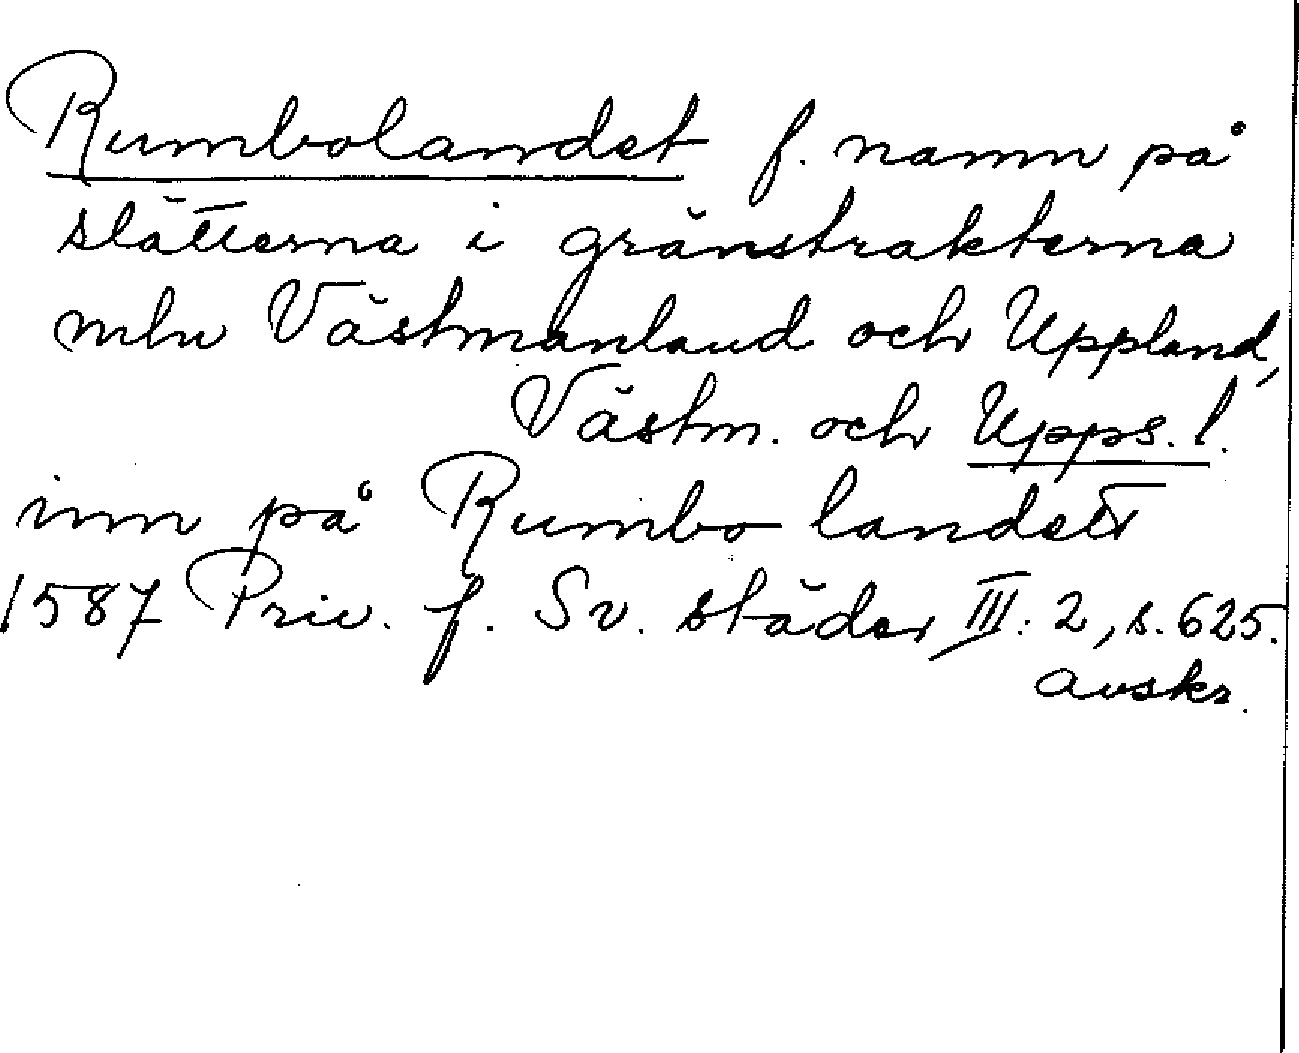 Rumbolandet f. namn på
slätterna i gränstrakterna
mln Västmanland och Uppland,
Västm. och Upps. l.
inn på Rumbo landett
1587 Priv. f. Sv. städer III: 2, s. 625.
avskr.